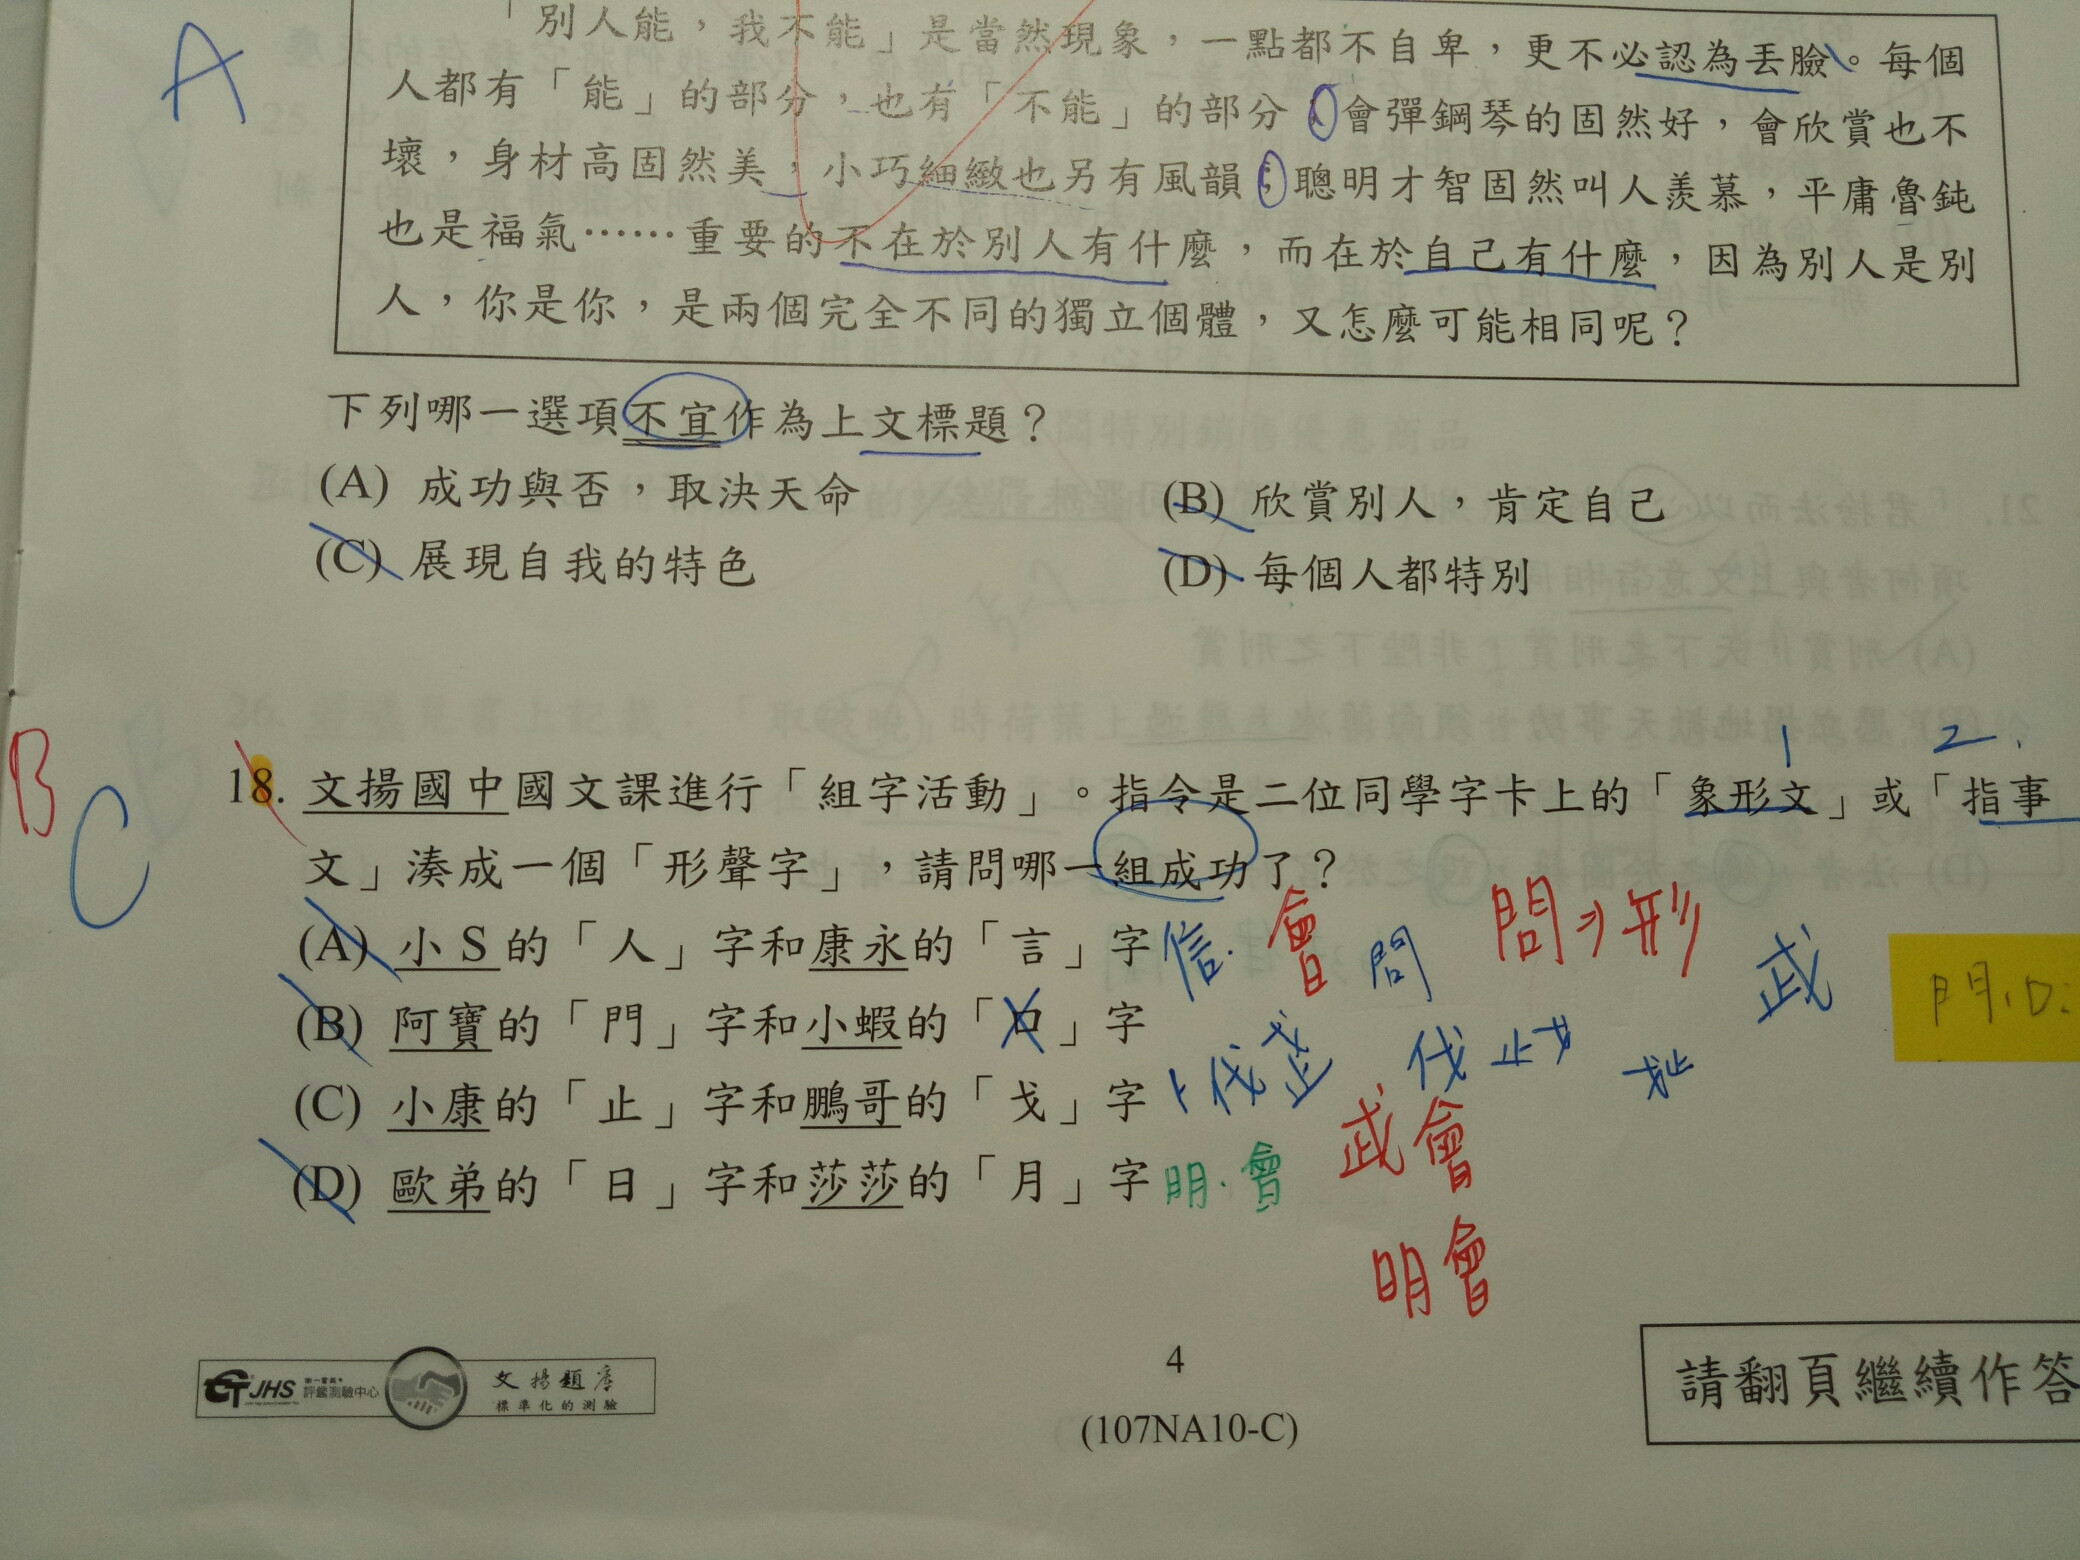 「別人能，我不能」是當然現象，一點都不自卑，更不必認為丟臉。每個
人都有「能」的部分，也有「不能」的部分；會彈鋼琴的固然好，會欣賞也不
壞，身材高固然美，小巧細緻也另有風韻；聰明才智固然叫人羨慕，平庸魯鈍
也是福氣……重要的不在於別人有什麼，而在於自己有什麼，因為別人是別
人，你是你，是兩個完全不同的獨立個體，又怎麼可能相同呢？
A
下列哪一選項不宜作為上文標題？
(A) 成功與否，取決天命
(B) 欣賞別人，肯定自己
(C) 展現自我的特色
(D) 每個人都特別
B
C
1 2.
18. 文揚國中國文課進行「組字活動」。指令是二位同學字卡上的「象形文」或「指事
文」湊成一個「形聲字」，請問哪一組成功了？
(A) 小S的「人」字和康永的「言」字 信. 會 問 問 形
(B) 阿寶的「門」字和小蝦的「口」字
門
(C) 小康的「止」字和鵬哥的「戈」字 伐 伐 止
武會
(D) 歐弟的「日」字和莎莎的「月」字 明.會
明會
JHS 評鑑測驗中心
文揚題庫
標準化的測驗
4
(107NA10-C)
請翻頁繼續作答